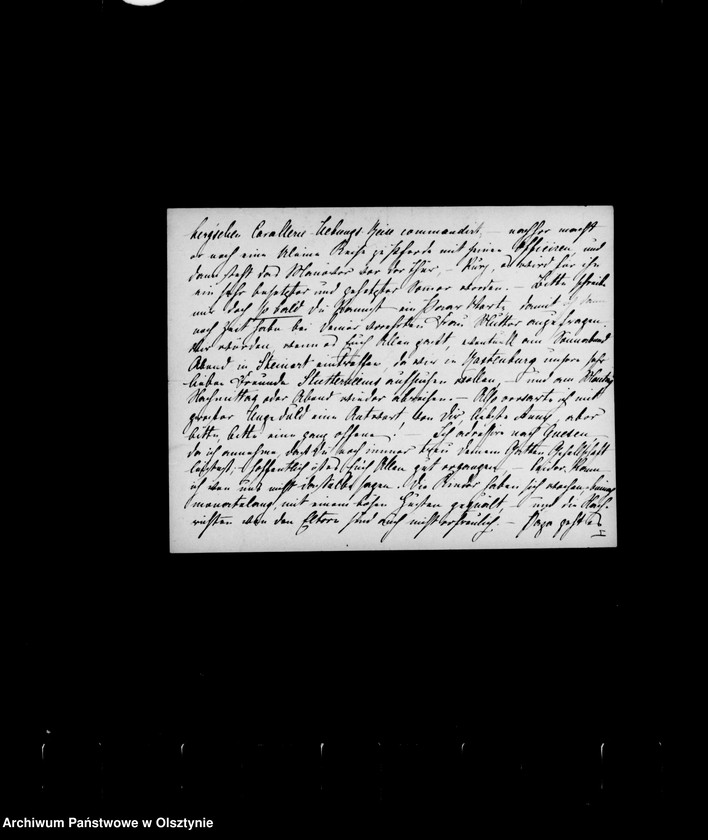 bergischen Cavallerie-Uebungs Reise commandirt, — nachher macht
er noch eine kleine Reise zu Pferde mit seinen Offizieren und
dann steht das Manöver vor der Thür, — Kurz, es wird für ihn
ein sehr besetzter und gehetzter Sommer werden. — Bitte schreibe
mir doch so bald Du kannst ein Paar Worte, damit
noch Zeit habe bei Deiner verehrten Frau Mutter anzufragen.
Wir würden, wenn es Euch Allen paßt, eventuell am Sonnabend
Abend in Steinort eintreffen, da wir in Rastenburg unsere sehr
lieben Freunde Stutterheims aufsuchen wollen, — und am Montag
Nachmittag oder Abend wieder abreisen. — Also erwarte ich mit
großer Ungeduld eine Antwort von Dir liebste Anna, aber
bitte, bitte eine ganz offene! — Ich adressire nach Gnesen
da ich annehme, daß Du noch immer treu Deinem Gatten Gesellschaft
leistest; hoffentlich ist es Euch Allen gut ergangen — leider kann
ich von uns nicht dasselbe sagen. Die Kinder haben sich
monatelang, mit einem bösen Husten gequält, — und die Nach-
richten von den Eltern sind auch nicht erfreulich, — Papa geht es